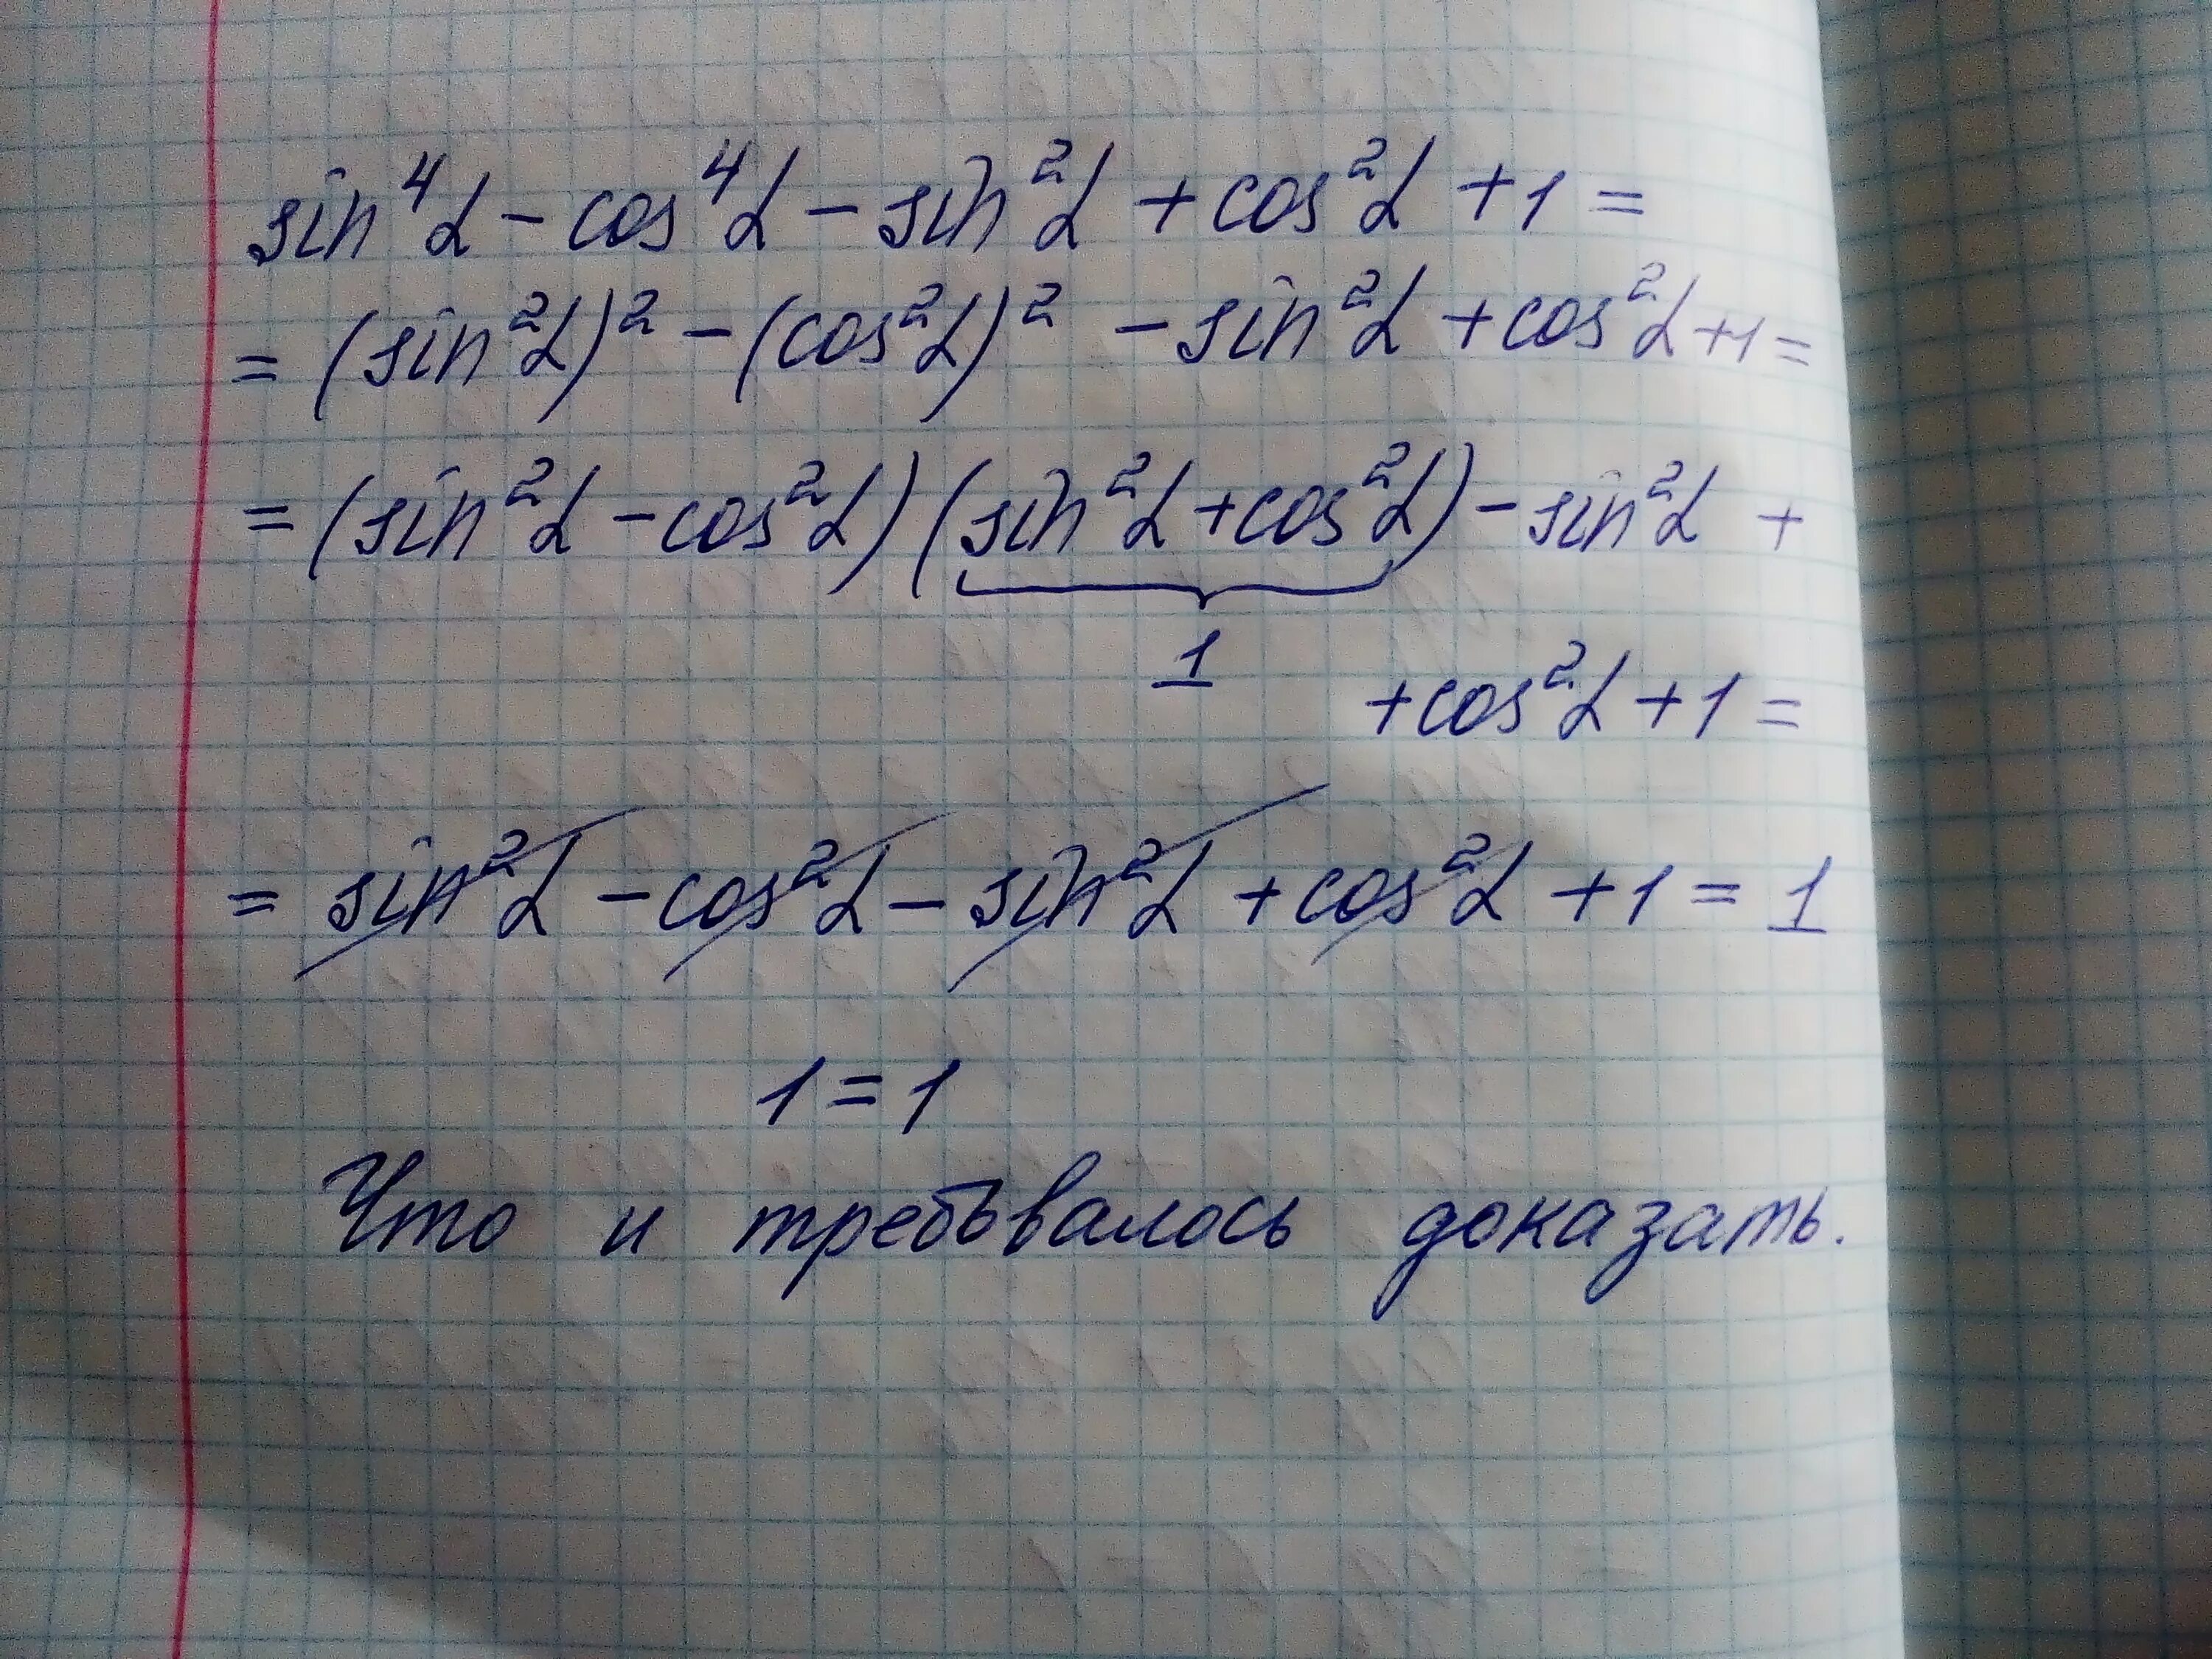 sin⁴α - cos⁴α - sin²α + cos²α + 1 =
= (sin²α)² - (cos²α)² - sin²α + cos²α + 1 =
= (sin²α - cos²α)(sin²α + cos²α) - sin²α +
1
+ cos²α + 1 =
= sin²α - cos²α - sin²α + cos²α + 1 = 1
1 = 1
Что и требывалось доказать.